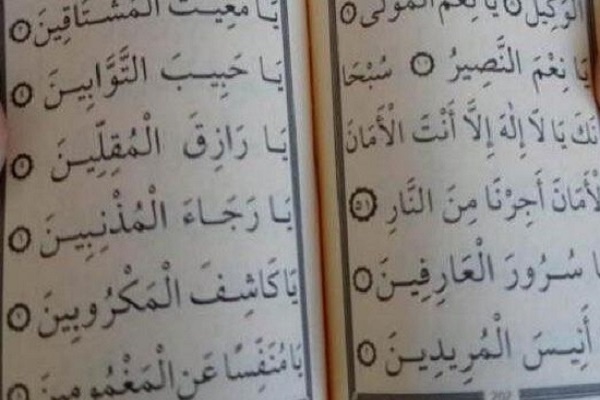 الْوَكِيلُ ۞ يَا نِعْمَ الْمَوْلَى ۞
يَا نِعْمَ النَّصِيرُ ۞ سُبْحَا
نَكَ يَا لَا إِلٰهَ إِلَّا أَنْتَ الْأَمَانَ
الْأَمَانَ أَجِرْنَا مِنَ النَّارِ ۞
ا سُرُورَ الْعَارِفِينَ ۞
أَنِيسَ الْمُرِيدِينَ ۞
202
يَا مُغِيثَ الْمُشْتَاقِينَ ۞
يَا حَبِيبَ التَّوَّابِينَ ۞
يَا رَازِقَ الْمُقِلِّينَ ۞
يَا رَجَاءَ الْمُذْنِبِينَ ۞
يَا كَاشِفَ الْمَكْرُوبِينَ ۞
يَا مُنَفِّسًا عَنِ الْمَغْمُومِينَ ۞